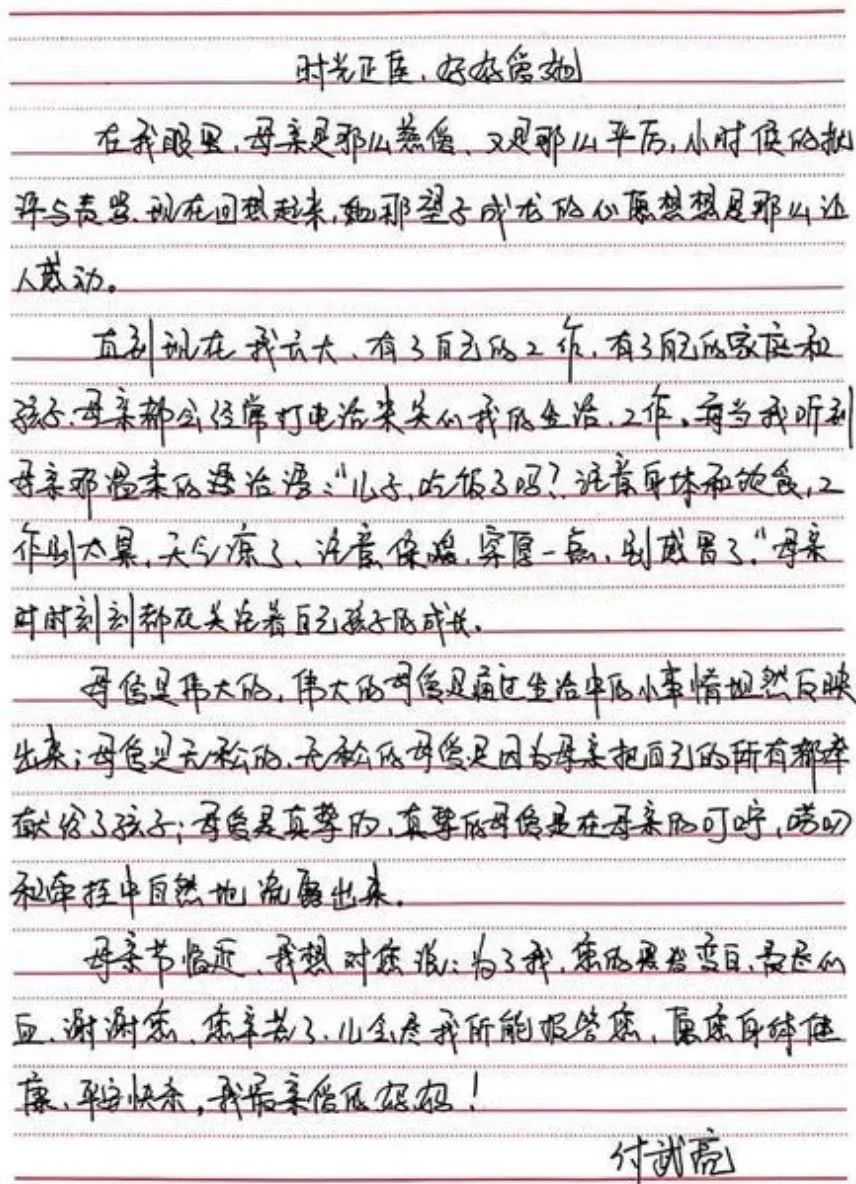 时光正在，好好爱她
在我眼里，母亲是那么慈爱、又是那么平历，小时候的批
评与责骂，现在回想起来，她那望子成龙的心愿想想是那么让
人感动。
直到现在我长大、有了自己的工作，有了自己的家庭和
孩子，母亲都会经常打电话来关心我的生活、工作。每当我听到
母亲那温柔的话语：“儿子，吃饭了吗？注意身体和饮食，工
作别太累，天气凉了、注意保暖，穿厚一点，别感冒了。”母亲
时时刻刻都在关注着自己孩子的成长。
母爱是伟大的，伟大的母爱是通过生活中的小事情坦然反映
出来；母爱是无私的，无私的母爱是因为母亲把自己的所有都奉
献给了孩子；母爱是真挚的，真挚的母爱是在母亲的叮咛，唠叨
和牵挂中自然地流露出来。
母亲节临近、我想对您说：为了我，您的黑发变白，费尽心
血，谢谢您、您辛苦了、儿会尽我所能报答您、愿您身体健
康、平安快乐，我最亲爱的妈妈！
付武亮